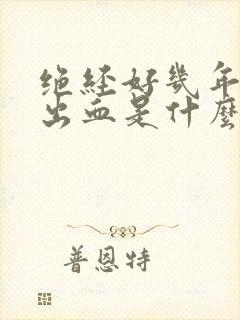 绝经好幾年
出血是什麽
普恩特